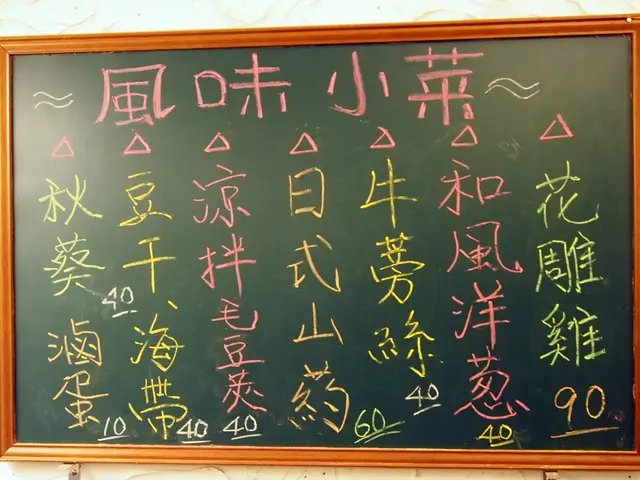 風味小菜
花雕雞 90
和風洋葱 40
牛蒡絲 40
日式山葯 60
涼拌毛豆莢 40
豆干、海帶 40
秋葵 40
滷蛋 10